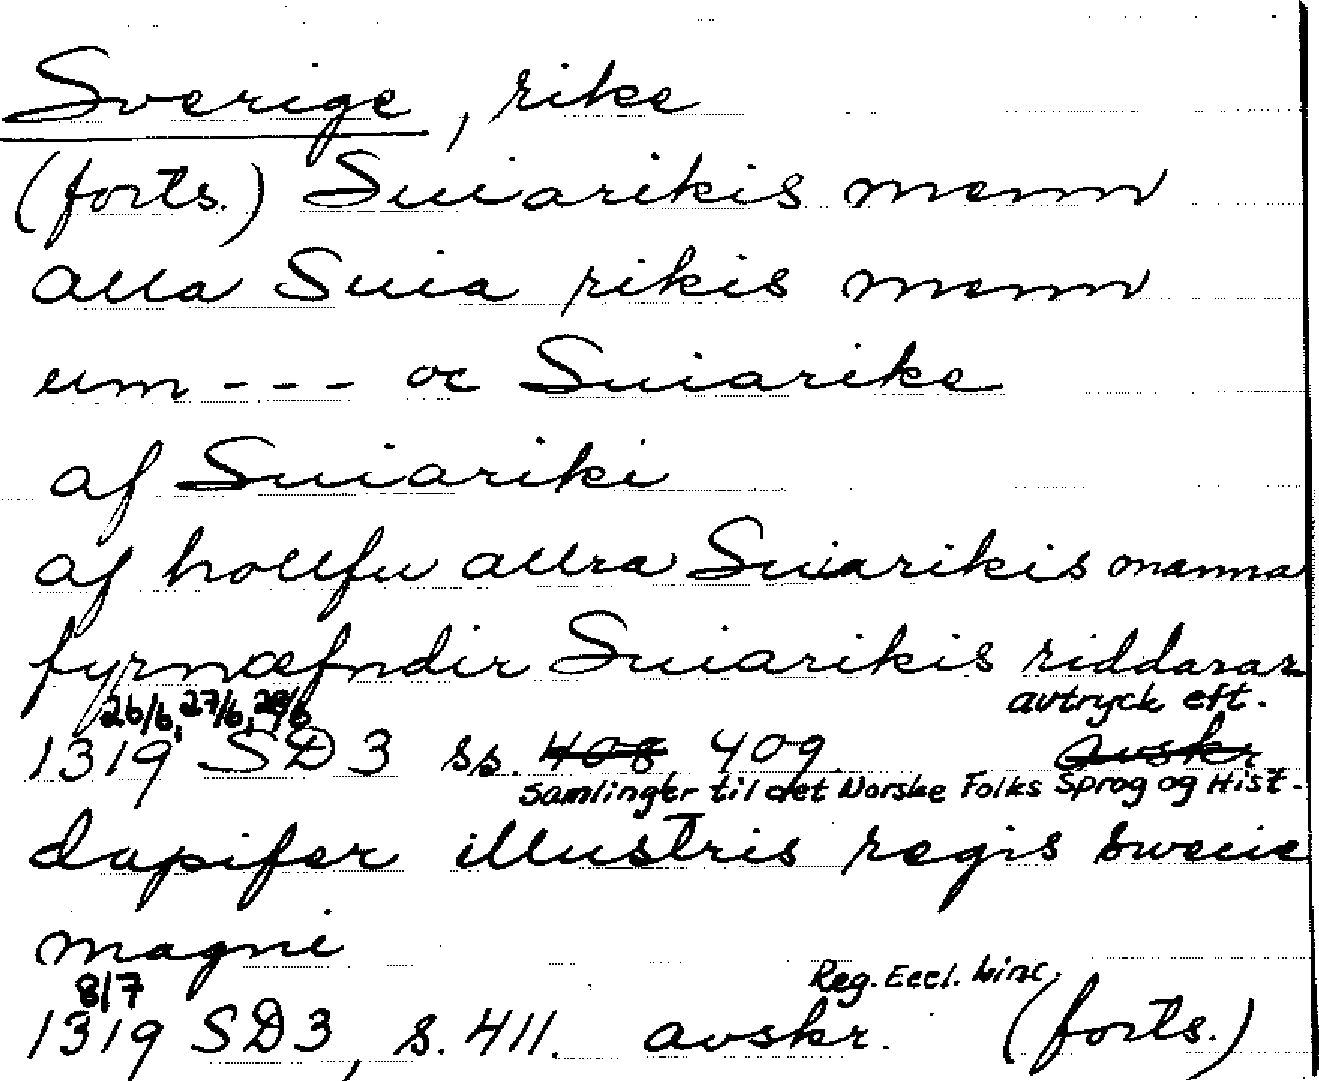 Sverige, rike
(forts.) Suiarikis menn
alla Suia rikis menn
um - - - oc Suiarike
af Suiariki
af hollfu allra Suiarikis manna
fyrnæfndir Suiarikis riddarar
26/6, 27/6, 28/6 avtryck eft.
1319 SD 3 ss. 408 409. avskr.
Samlinger til det Norske Folks Sprog og Hist.
dapifer illustris regis swecie
magni
8/7 Reg. Eccl. Linc.
1319 SD3, s. 411. avskr. (forts.)